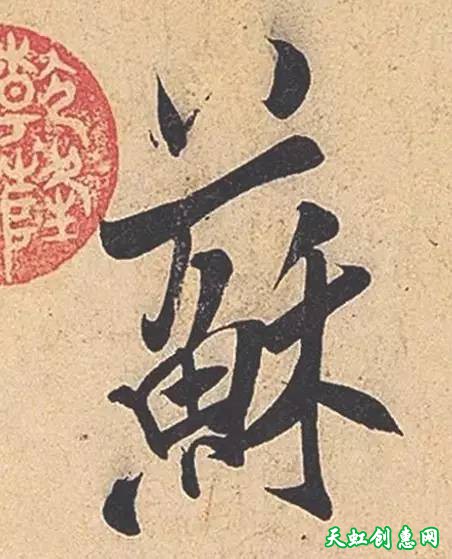 蘇
天虹创惠网